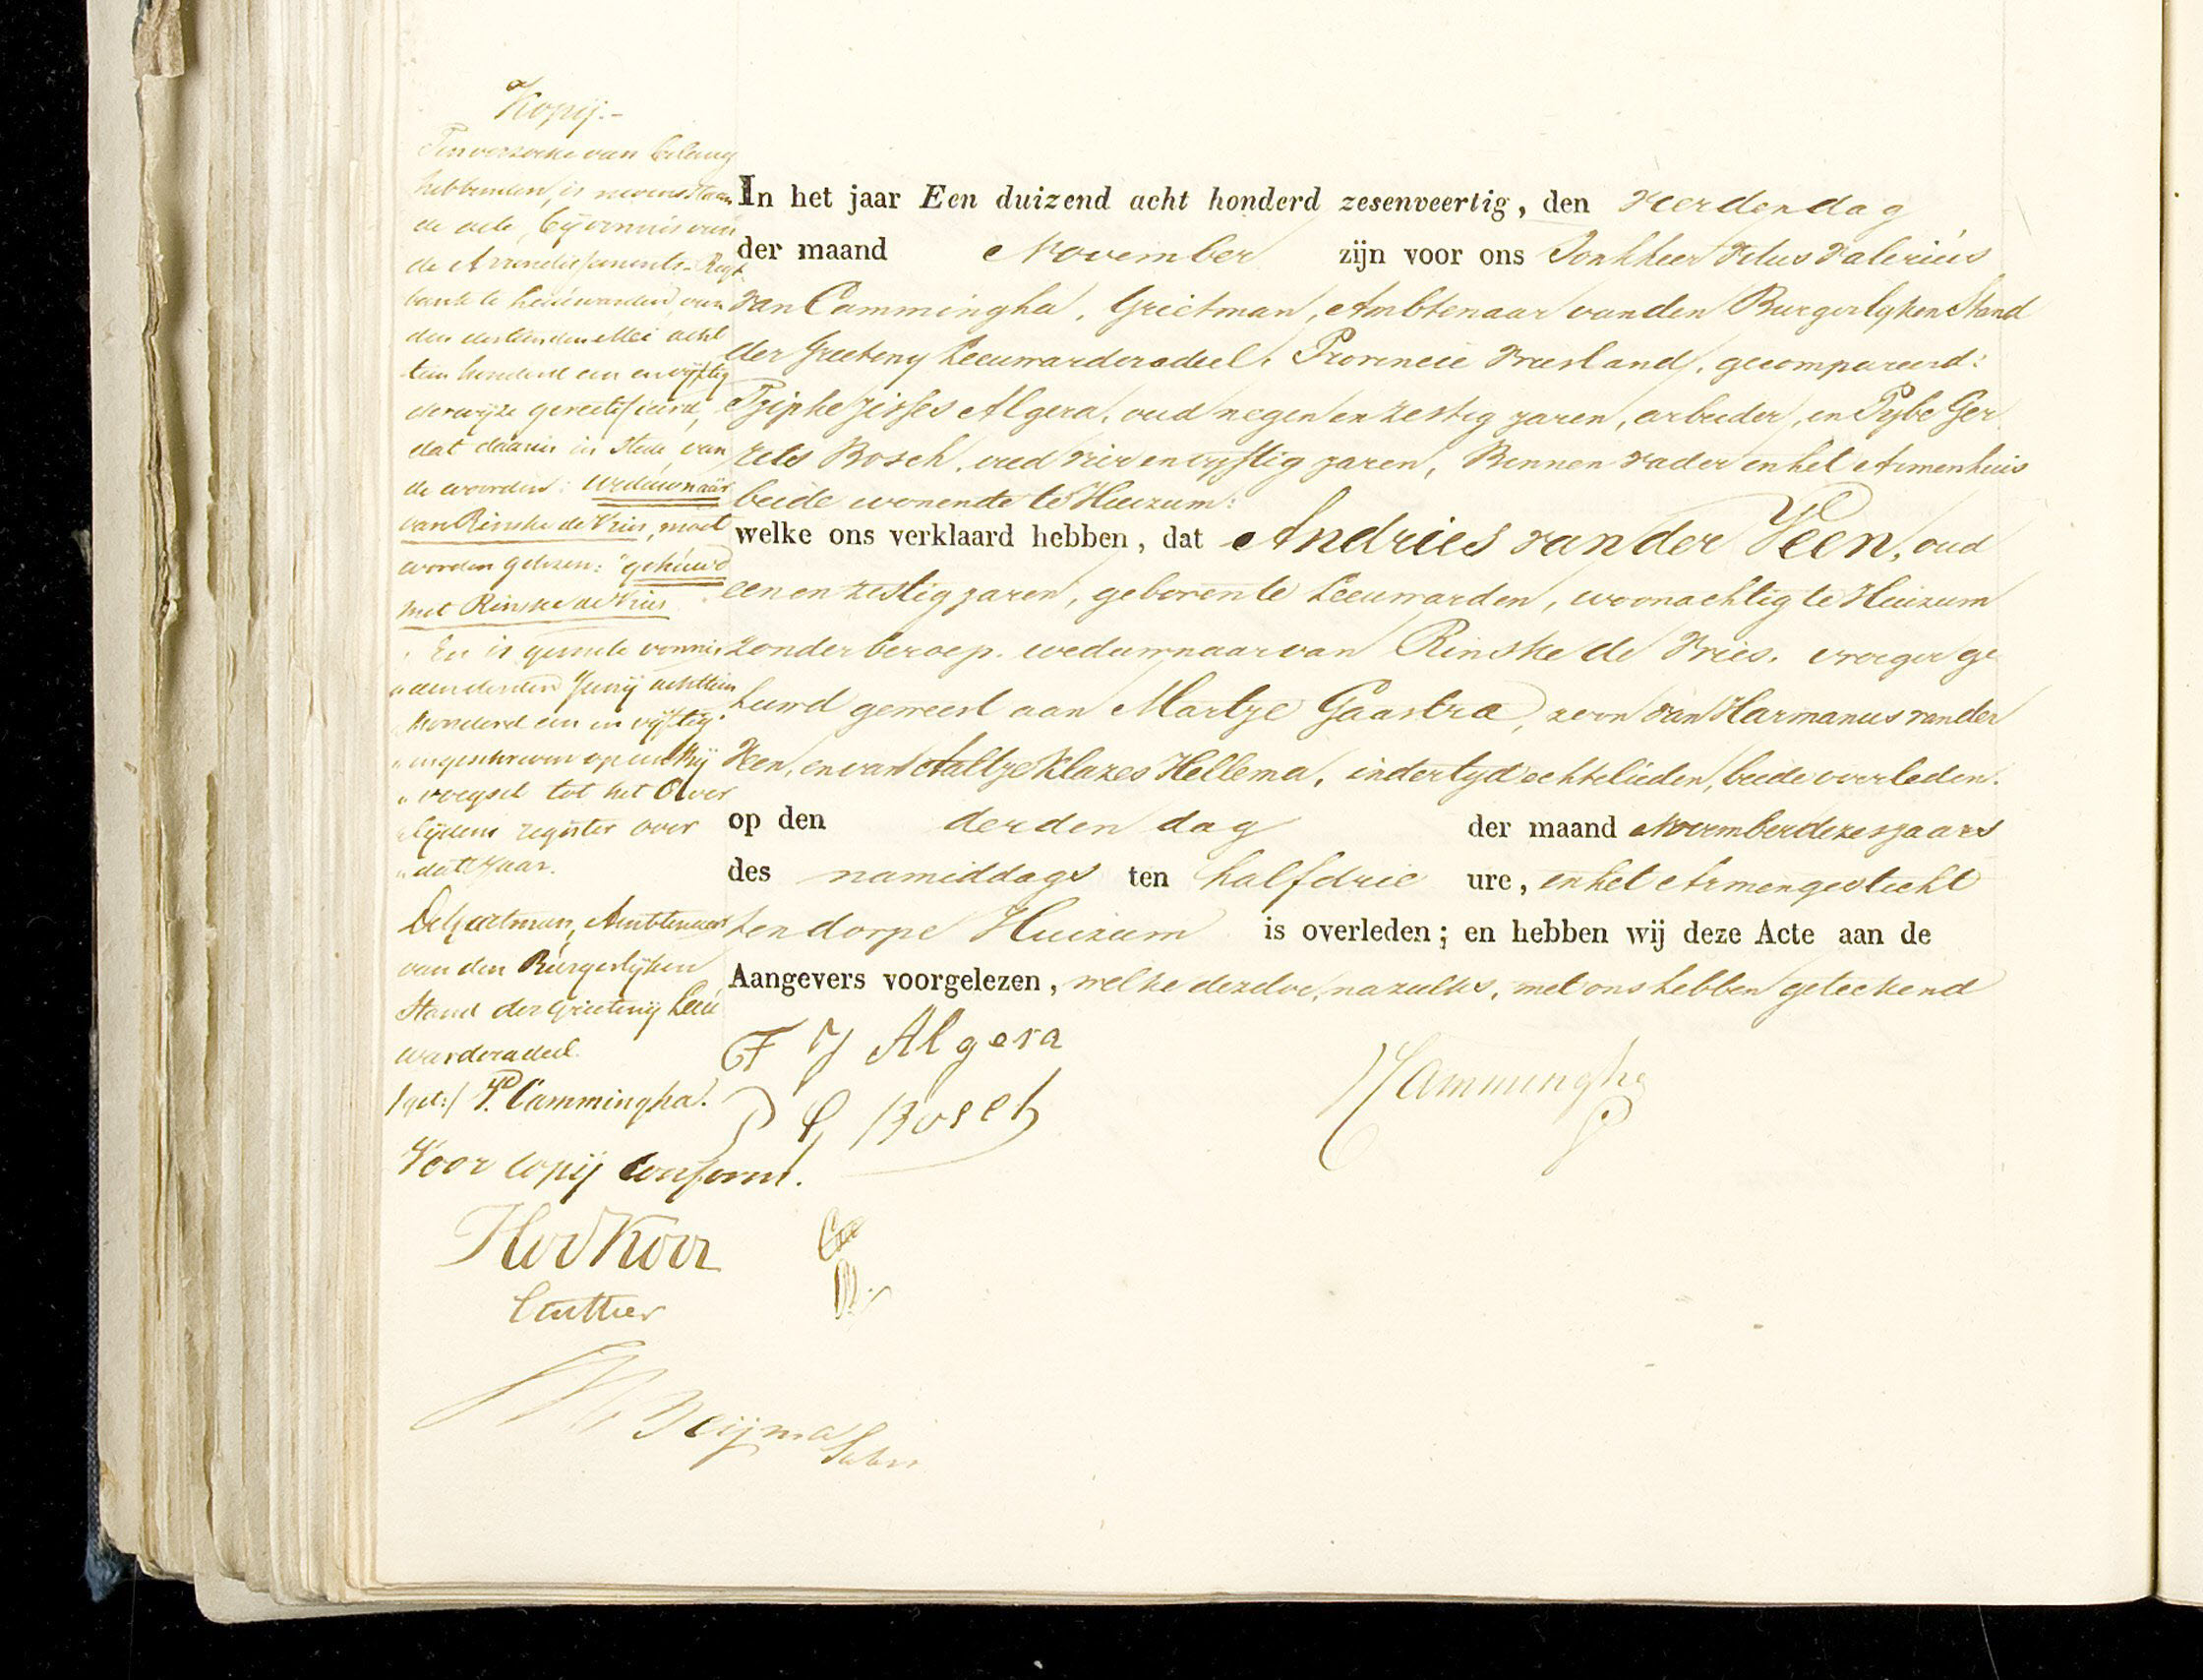 Kopij:-
Ten versoeke van belang
hebbenden, is nevenstaan
de acte, bij vonnis van
de Arrondissements-Regt
bank te Leeuwarden, van
den dertienden Mei acht
tien honderd een en vijftig
derwijze gerectificeerd,
dat daarin in stede van
de woorden: weduwnaar
van Rinske de Vries, moet
worden gelezen: "gehuwd
met Rinske de Vries
En is gemelde vonnis
den derden Junij achttien
honderd een en vijftig
ingeschreven op een Bij
voegsel tot het Over
lijdens register over
dat Jaar.
De Grietman, Ambtenaar
van den Burgerlijken
Stand der Grietenij Leeu
warderadeel.
/get:/ Cammingha.
Voor copij conform.
Griffier
In het jaar Een duizend acht honderd zesenveertig, den vierden dag
der maand November zijn voor ons Jonkheer Vitus Valerius
van Cammingha, Grietman, Ambtenaar van den Burgerlyken Stand
der Grieteny Leeuwarderadeel, Provincie Vriesland, gecompareerd:
Algera, oud negen en zestig jaren, arbeider, en Pybe Ger
rits Bosch, oud vier en vyftig jaren, Binnen vader in het Armenhuis
beide wonende te Huizum:
welke ons verklaard hebben, dat Andries van der Veen, oud
een en zestig jaren, geboren te Leeuwarden, woonachtig te Huizum
zonder beroep. weduwnaar van Rinske de Vries. vroeger ge
huwd geweest aan Martje Gaastra, zoon van Harmanus van der
Veen, en van Aaltje Klazes Hellema, in der tyd echtelieden, beide overleden.
op den derden dag der maand November dezes jaars
des namiddags ten half drie ure, in het Armengesticht
ten dorpe Huizum is overleden; en hebben wij deze Acte aan de
Aangevers voorgelezen, welke dezelve, nazulks, met ons hebben geteekend
F J Algera
P G Bosch
Cammingha